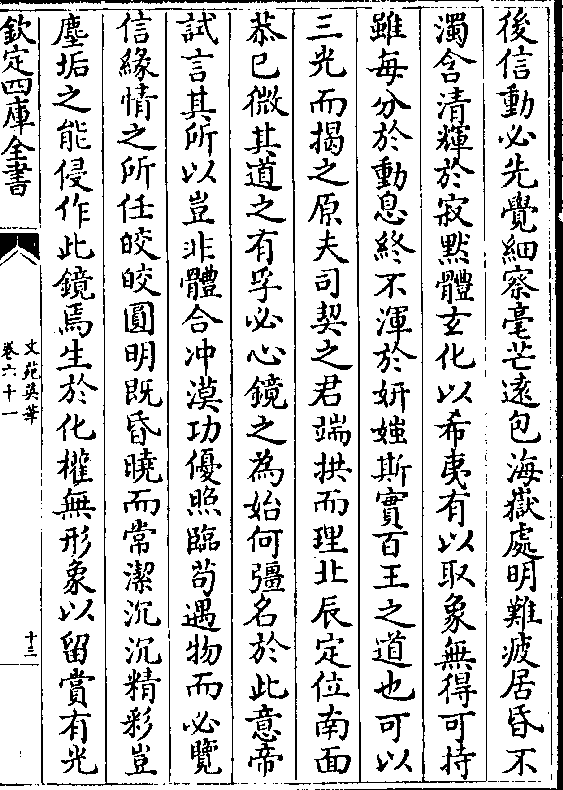 後信動必先覺細察毫芒遠包海嶽處明難疲居昏不
濁含清輝於寂黙體玄化以希夷有以取象無得可持
雖每分於動息終不渾於妍媸斯實百王之道也可以
三光而揭之原夫司契之君端拱而理北辰定位南面
恭已微其道之有孚必心鏡之為始何彊名於此意帝
試言其所以豈非體合冲漠功優照臨苟遇物而必覽
信緣情之所任皎皎圓明既昏曉而常潔沉沉精彩豈
塵垢之能侵作此鏡焉生於化權無形象以留賞有光
欽定四庫全書
文苑英華
卷六十一
十三